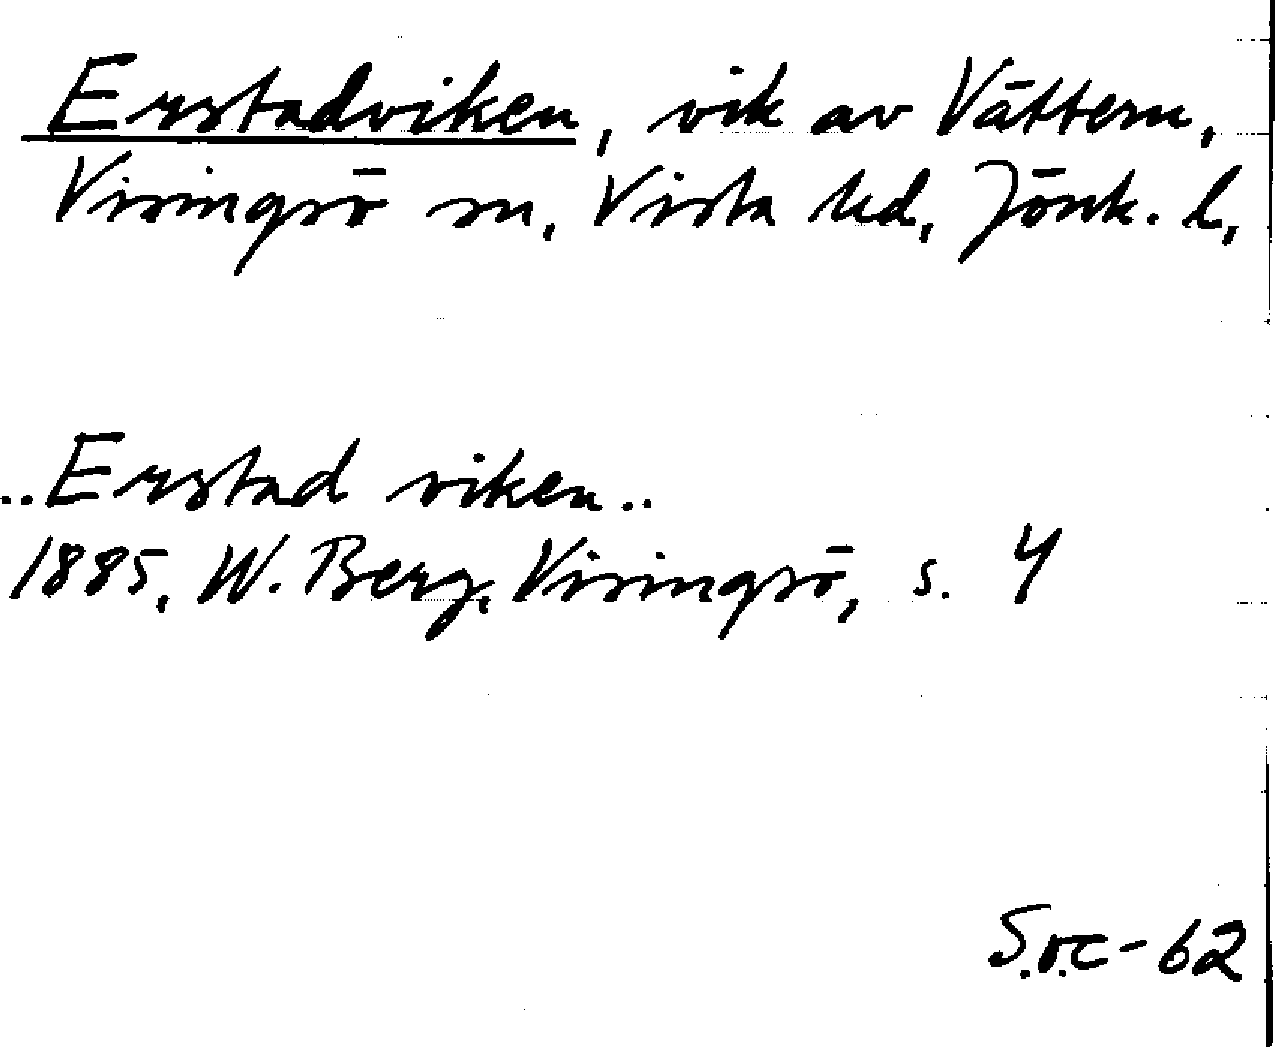 Erstadviken, vik av Vättern,
Visingsö sn, Vista hd, Jönk. l,
..Erstad viken..
1885, W. Berg, Visingsö, s. 4
S.v.c-62